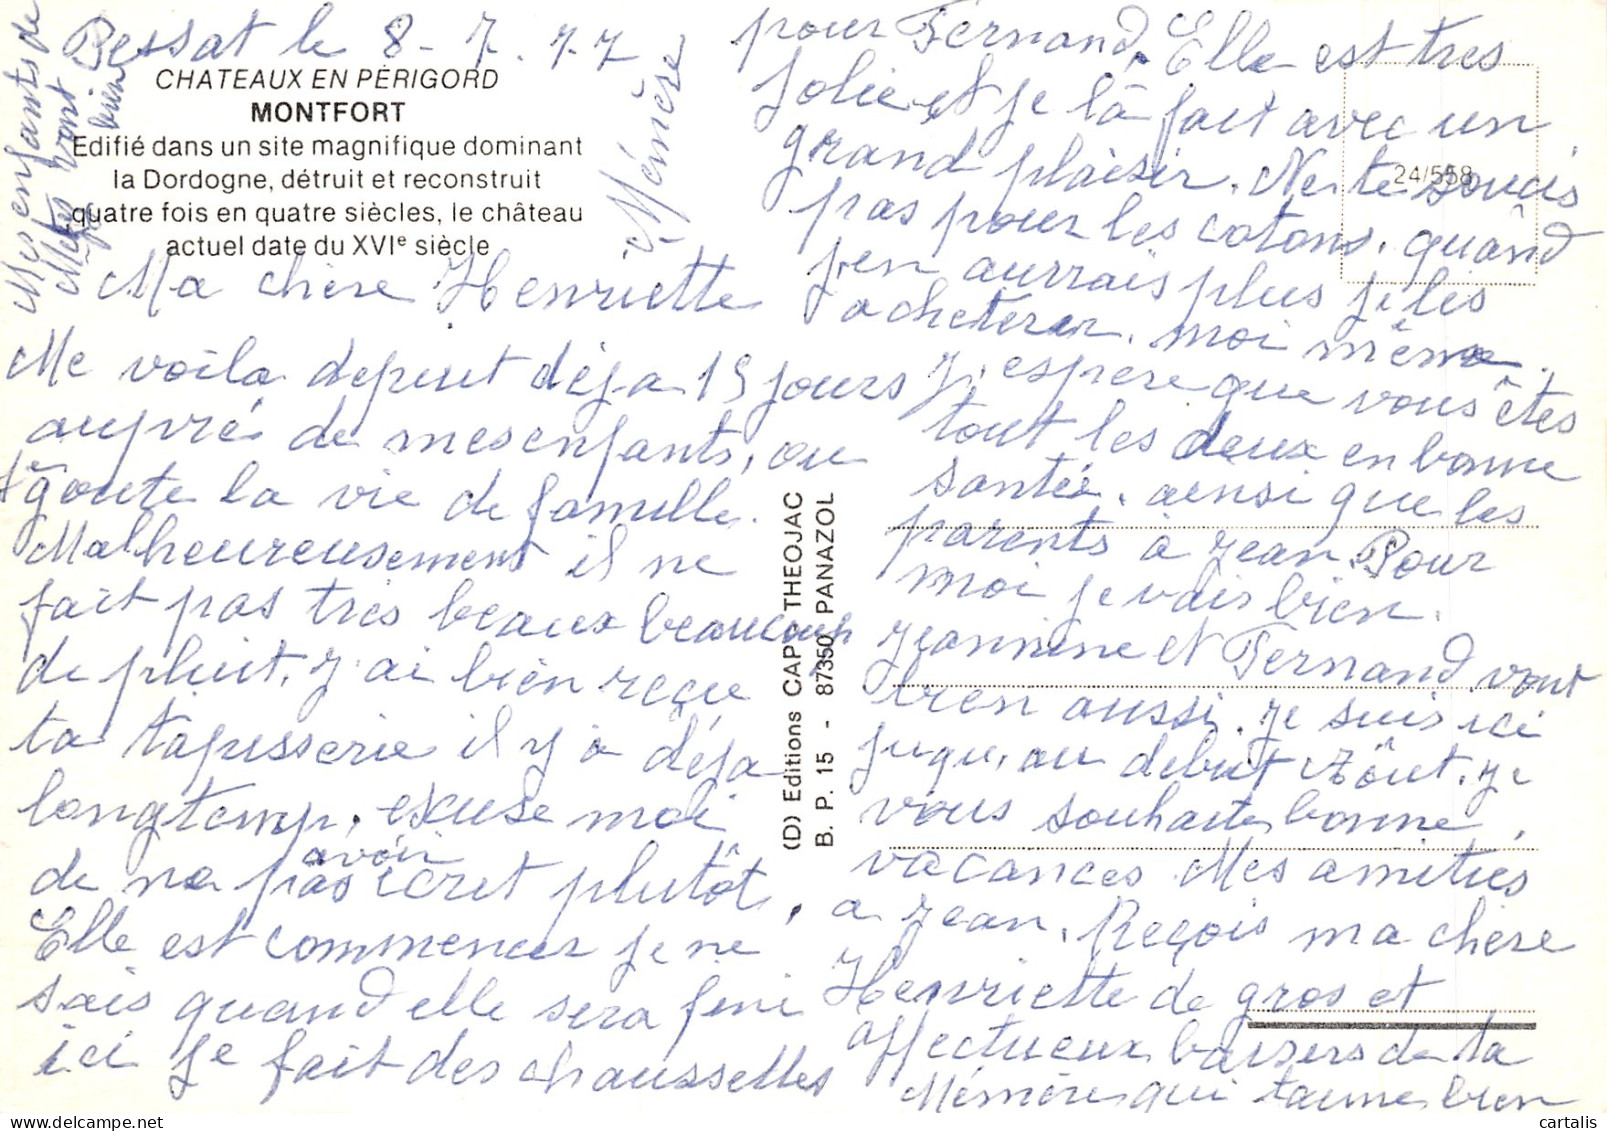 Bessat le 8-7.77
CHATEAUX EN PÉRIGORD
MONTFORT
Edifié dans un site magnifique dominant
la Dordogne, détruit et reconstruit
quatre fois en quatre siècles, le château
actuel date du XVIe siècle
Ma chère Henriette
Me voila depuit déja 15 jours
auprés de mes enfants, ou
je goute la vie de famille.
Malheureusement il ne
fait pas tres beaux beaucoup
de pluit. J'ai bien reçue
ta tapisserie il y a déja
longtemp. excuse moi
de ne pas avoir écret plutôt,
Elle est commencer je ne
sais quand elle sera fini
ici je fait des chausselles
pour Fernand. Elle est tres
jolie et je la fait avec un
grand plaisir. Ne te soucis
pas pour les cotons. quand
j'en aurrais plus je les
acheterer. moi même.
J'espere que vous êtes
tout les deux en bonne
santé. ainsi que les
parents à Jean. Pour
moi je vais bien.
Jeannine et Fernand vont
bien aussi. Je suis ici
jusqu'au debut Aôut. Je
vous souhaite bonne
vacances. Mes amitiés
a Jean. Reçois ma chère
Henriette de gros et
affectueux baisers de ta
Mémère qui t'aime bien
Mémère
Mes enfants de
Metes vont
bien
24/558
(D) Editions CAP - THEOJAC
B. P. 15 - 87350 PANAZOL
cartalis